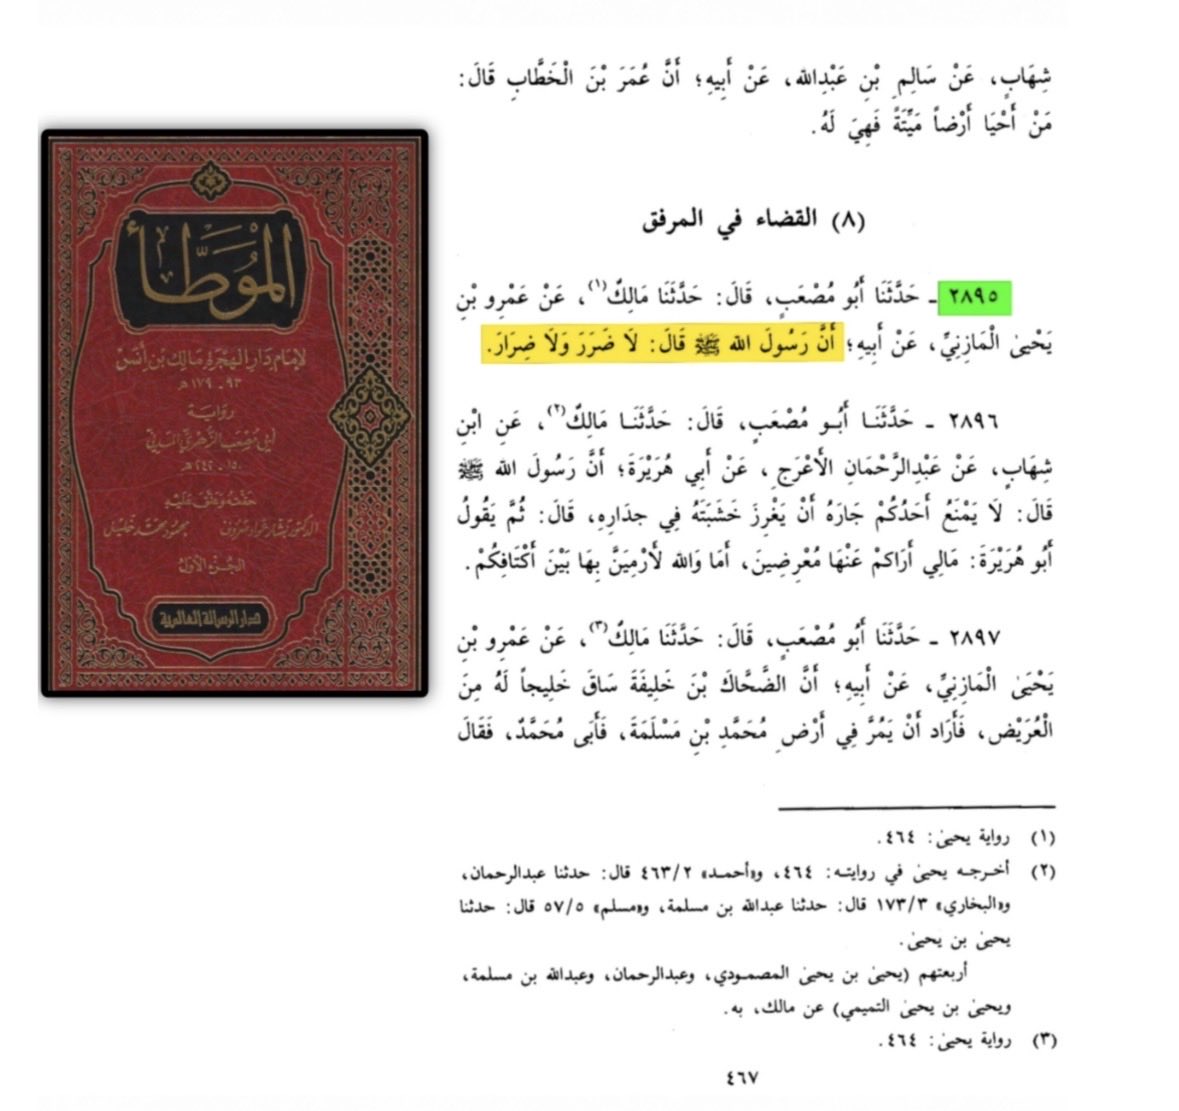 شِهَابٍ، عَنْ سَالِمِ بْنِ عَبْدِالله، عَنْ أَبِيهِ؛ أَنَّ عُمَرَ بْنَ الْخَطَّابِ قَالَ:
مَنْ أَحْيَا أَرْضاً مَيِّتَةً فَهِيَ لَهُ.
(٨) القضاء في المرفق
٢٨٩٥ ـ حَدَّثَنَا أَبُو مُصْعَبٍ، قَالَ: حَدَّثَنَا مَالِكٌ(١)، عَنْ عَمْرِو بْنِ
يَحْيىٰ الْمَازِنِيِّ، عَنْ أَبِيهِ؛ أَنَّ رَسُولَ الله ﷺ قَالَ: لَا ضَرَرَ وَلَا ضِرَارَ.
٢٨٩٦ ـ حَدَّثَنَا أَبُو مُصْعَبٍ، قَالَ: حَدَّثَنَا مَالِكٌ(٢)، عَنِ ابْنِ
شِهَابٍ، عَنْ عَبْدِالرَّحْمَانِ الْأَعْرَجِ، عَنْ أَبِي هُرَيْرَةَ؛ أَنَّ رَسُولَ الله ﷺ
قَالَ: لَا يَمْنَعُ أَحَدُكُمْ جَارَهُ أَنْ يَغْرِزَ خَشَبَتَهُ فِي جِدَارِهِ، قَالَ: ثُمَّ يَقُولُ
أَبُو هُرَيْرَةَ: مَالِي أَرَاكمْ عَنْهَا مُعْرِضِينَ، أَمَا وَالله لَأَرْمِيَنَّ بِهَا بَيْنَ أَكْتَافِكُمْ.
٢٨٩٧ ـ حَدَّثَنَا أَبُو مُصْعَبٍ، قَالَ: حَدَّثَنَا مَالِكٌ(٣)، عَنْ عَمْرِو بْنِ
يَحْيَىٰ الْمَازِنِيِّ، عَنْ أَبِيهِ؛ أَنَّ الضَّحَّاكَ بْنَ خَلِيفَةَ سَاقَ خَلِيجاً لَهُ مِنَ
الْعُرَيْضِ، فَأَرَادَ أَنْ يَمُرَّ فِي أَرْضِ مُحَمَّدِ بْنِ مَسْلَمَةَ، فَأَبَى مُحَمَّدٌ، فَقَالَ
(١) رواية يحيىٰ: ٤٦٤.
(٢) أخرجه يحيىٰ في روايته: ٤٦٤، و«أحمد» ٤٦٣/٢ قال: حدثنا عبدالرحمان،
و«البخاري» ١٧٣/٣ قال: حدثنا عبدالله بن مسلمة، و«مسلم» ٥٧/٥ قال: حدثنا
يحيىٰ بن يحيىٰ.
أربعتهم (يحيىٰ بن يحيىٰ المصمودي، وعبدالرحمان، وعبدالله بن مسلمة،
ويحيىٰ بن يحيىٰ التميمي) عن مالك، به.
(٣) رواية يحيىٰ: ٤٦٤.
٤٦٧
الموطَّأ
لإمام دار الهجرة مالك بن أنس
٩٣ ـ ١٧٩ هـ
رواية
أبي مصعب الزهري المدني
١٥٠ ـ ٢٤٢ هـ
حققه وعلق عليه
الدكتور بشار عواد معروف محمود محمد خليل
الجزء الأول
دار الرسالة العالمية